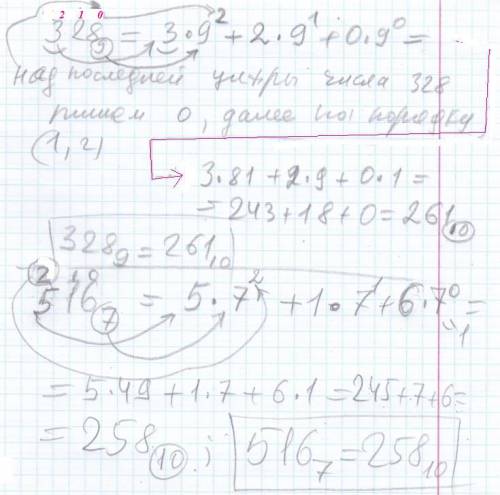 2 1 0
328₉ = 3·9² + 2·9¹ + 0·9⁰ =
над последней цифры числа 328
пишем 0, далее по порядку
(1, 2)
3·81 + 2·9 + 0·1 =
= 243 + 18 + 0 = 261₁₀
328₉ = 261₁₀
2 1 0
516₇ = 5·7² + 1·7¹ + 6·7⁰ =
"1
= 5·49 + 1·7 + 6·1 = 245 + 7 + 6 =
= 258₁₀ ; 516₇ = 258₁₀